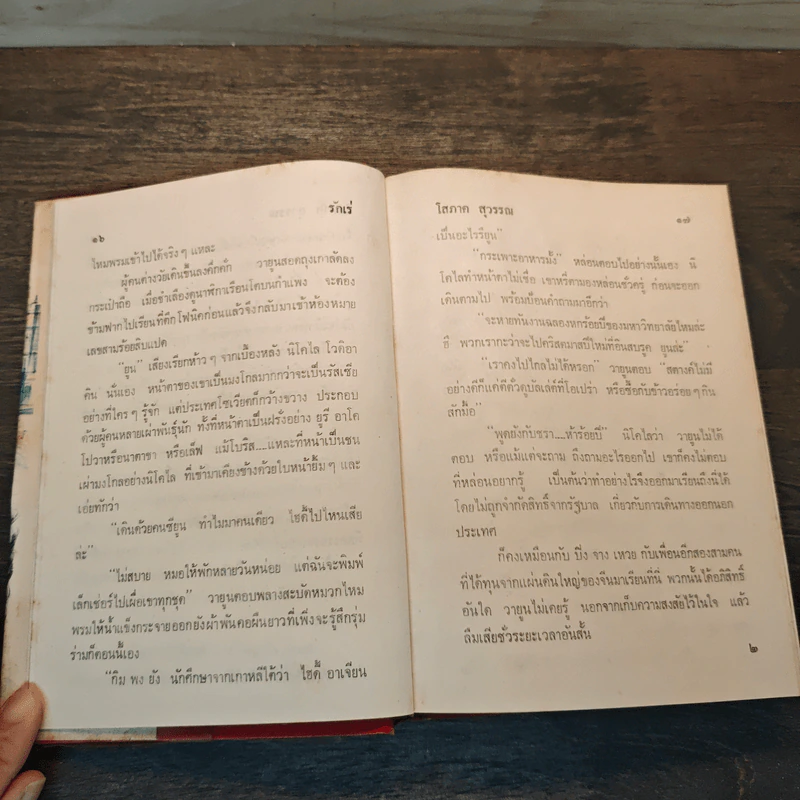 ๑๖
รักเร่
ไหมพรมเข้าไปได้จริงๆ แหละ
ผู้คนต่างวัยเดินขึ้นลงคึกคัก วายูนสอดถุงเกาลัดลง
กระเป๋าถือ เมื่อชำเลืองดูนาฬิกาเรือนโตบนกำแพง จะต้อง
ข้ามฟากไปเรียนที่ตึกโฟนิคก่อนแล้วจึงกลับมาเข้าห้องหมาย
เลขสามร้อยสิบแปด
"ยูน" เสียงเรียกห้าวๆ จากเบื้องหลัง นิโคไล โวดิอา
คิน นั่นเอง หน้าตาของเขาเป็นมงโกลมากกว่าจะเป็นรัสเซีย
อย่างที่ใครๆ รู้จัก แต่ประเทศโซเวียตก็กว้างขวาง ประกอบ
ด้วยผู้คนหลายเผ่าพันธุ์นัก ทั้งที่หน้าตาเป็นฝรั่งอย่าง ยูริ อาโด
โปวาหรือนาตาชา หรือเล็ฟ แม้โบริส.....และที่หน้าเป็นชน
เผ่ามงโกลอย่างนิโคไล ที่เข้ามาเคียงข้างด้วยใบหน้ายิ้มๆ และ
เอ่ยทักว่า
"เดินด้วยคนซิยูน ทำไมมาคนเดียว ไฮดี้ไปไหนเสีย
ล่ะ"
"ไม่สบาย หมอให้พักหลายวันหน่อย แต่ฉันจะพิมพ์
เล็กเช่อร์ไปเผื่อเขาทุกชุด" วายูนตอบพลางสะบัดหมวกไหม
พรมให้น้ำแข็งกระจายออกยังผ้าพันคอผืนยาวที่เพิ่งจะรู้สึกรุ่ม
ร่ามก็ตอนนี้เอง
"กิม พง ยัง นักศึกษาจากเกาหลีใต้ว่า ไฮดี้ อาเจียน
โสภาค สุวรรณ
๑๗
เป็นอะไรรึยูน"
"กระเพาะอาหารมั้ง" หล่อนตอบไปอย่างนั้นเอง นิ
โคไลทำหน้าตาไม่เชื่อ เขาหรี่ตามองหล่อนชั่วครู่ ก่อนจะออก
เดินตามไป พร้อมป้อนคำถามมาอีกว่า
"จะหายทันงานฉลองหกร้อยปีของมหาวิทยาลัยไหมล่ะ
อี พวกเรากะว่าจะไปคริสตมาสปีใหม่ที่อินสบรูค ยูนล่ะ"
"เราคงไปไกลไม่ได้หรอก" วายูนตอบ "สตางค์ไม่มี
อย่างดีก็แค่ตีตั๋วดูบัลเล่ต์ที่โอเปร่า หรือซื้อกับข้าวอร่อยๆ กิน
สักมื้อ"
"พูดยังกับชรา.....ห้าร้อยปี" นิโคไลว่า วายูนไม่ได้
ตอบ หรือแม้แต่จะถาม ถึงถามอะไรออกไป เขาก็คงไม่ตอบ
ที่หล่อนอยากรู้ เป็นต้นว่าทำอย่างไรจึงออกมาเรียนถึงนี่ได้
โดยไม่ถูกจำกัดสิทธิ์จากรัฐบาล เกี่ยวกับการเดินทางออกนอก
ประเทศ
ก็คงเหมือนกับ ปิง จาง เหวย กับเพื่อนอีกสองสามคน
ที่ได้ทุนจากแผ่นดินใหญ่ของจีนมาเรียนที่นี่ พวกนั้นได้อภิสิทธิ์
อันใด วายูนไม่เคยรู้ นอกจากเก็บความสงสัยไว้ในใจ แล้ว
ลืมเสียชั่วระยะเวลาอันสั้น
๒